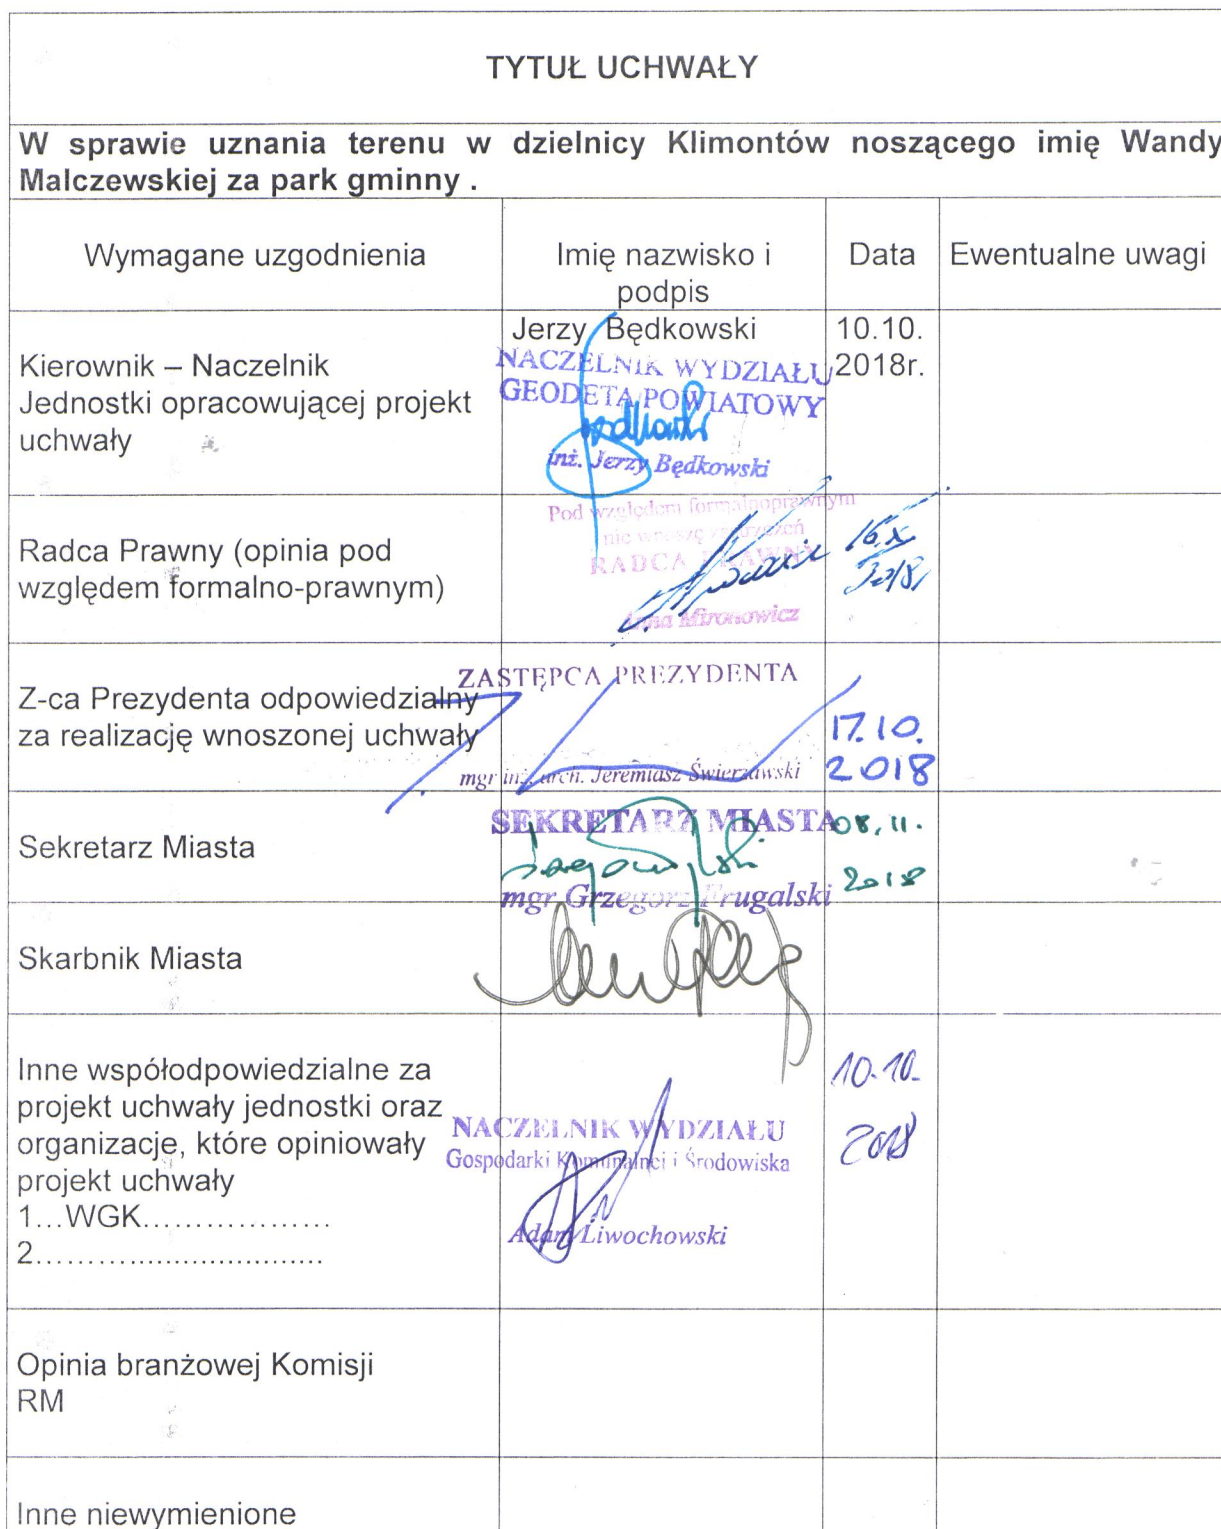 TYTUŁ UCHWAŁY
W sprawie uznania terenu w dzielnicy Klimontów noszącego imię Wandy
Malczewskiej za park gminny .
Wymagane uzgodnienia
Imię nazwisko i
podpis
Data
Ewentualne uwagi
Kierownik – Naczelnik
Jednostki opracowującej projekt
uchwały
Jerzy Będkowski
NACZELNIK WYDZIAŁU
GEODETA POWIATOWY
inż. Jerzy Będkowski
10.10.
2018r.
Radca Prawny (opinia pod
względem formalno-prawnym)
Pod względem formalnoprawnym
nie wnoszę zastrzeżeń
RADCA PRAWNY
Anna Mironowicz
16.X
2018
Z-ca Prezydenta odpowiedzialny
za realizację wnoszonej uchwały
ZASTĘPCA PREZYDENTA
mgr inż. arch. Jeremiasz Świerzawski
17.10.
2018
Sekretarz Miasta
SEKRETARZ MIASTA
mgr Grzegorz Frugalski
08.11.
2018
Skarbnik Miasta
Inne współodpowiedzialne za
projekt uchwały jednostki oraz
organizacje, które opiniowały
projekt uchwały
1...WGK..................
2.................................
NACZELNIK WYDZIAŁU
Gospodarki Komunalnej i Środowiska
Adam Liwochowski
10.10.
2018
Opinia branżowej Komisji
RM
Inne niewymienione